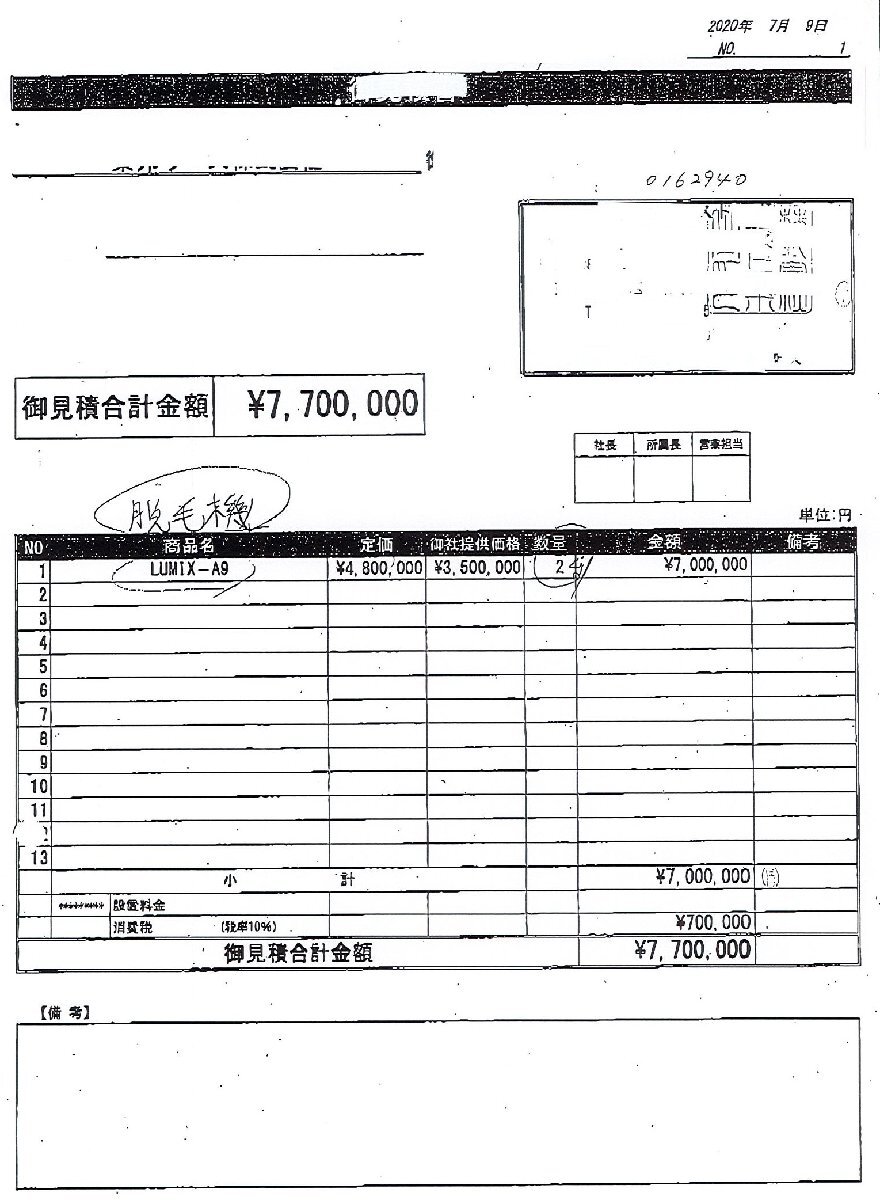 2020年 7月 9日
NO. 1
0162940
御見積合計金額 ¥7,700,000
社長 所属長 営業担当
脱毛機
単位:円
NO 商品名 定価 御社提供価格 数量 金額 備考
1 LUMIX-A9 ¥4,800,000 ¥3,500,000 2 ¥7,000,000
2
3
4
5
6
7
8
9
10
11
13
小 計 ¥7,000,000
******** 設置料金
消費税 (税率10%) ¥700,000
御見積合計金額 ¥7,700,000
【備 考】